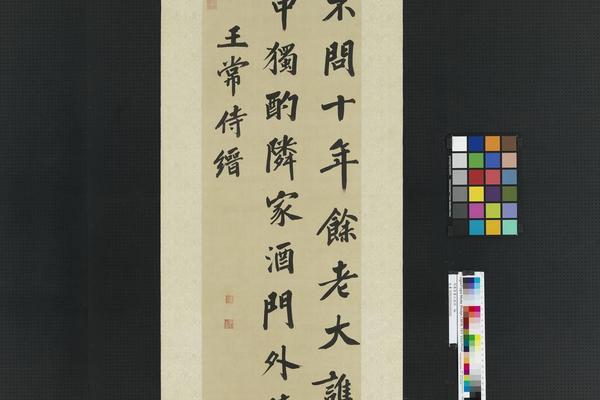 不問十年餘老大誰
中獨酌隣家酒門外
王常侍縉